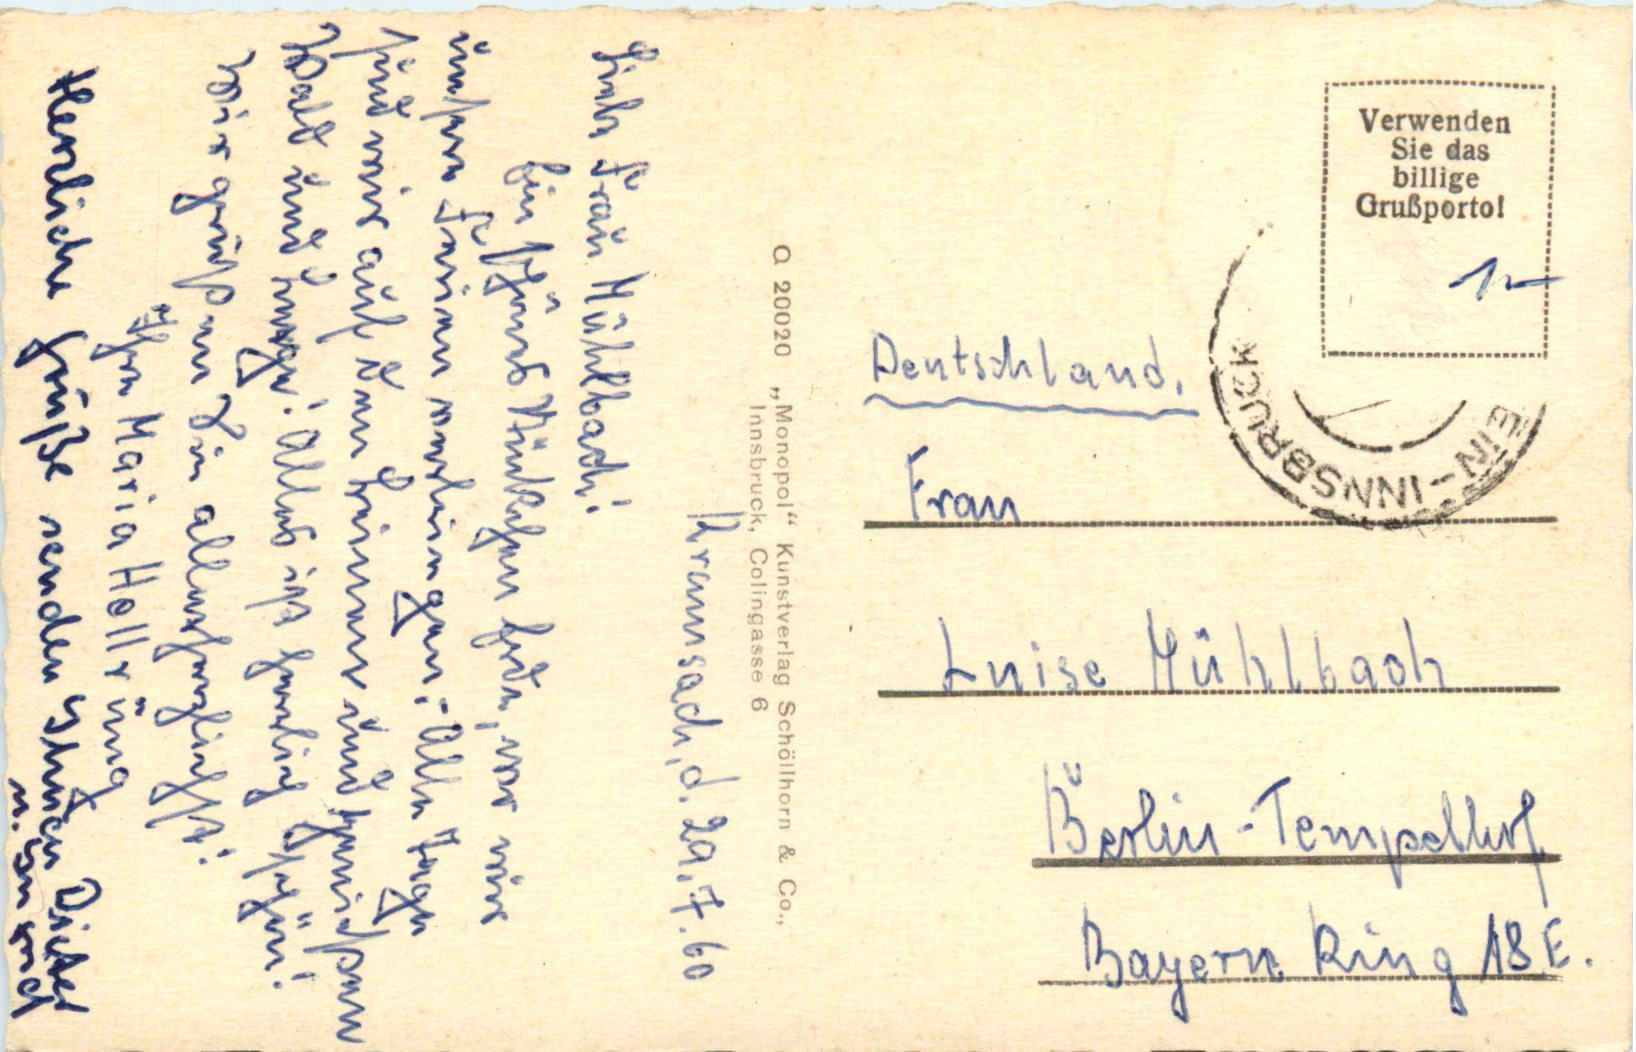 Kramsach, d. 29.7.60
Liebe Frau Mühlbach!
Ein schönes Stückchen Erde, wo wir
unsere Ferien verbringen. Alle Tage
sind wir auf den Beinen und genießen
Wald und Berge! Alles ist herrlich schön!
Wir grüßen Sie allerherzlichst!
Ihre Maria Hellrüng
Herzliche Grüße senden Ihnen Dieter
u.
Q 20020 „Monopol“ Kunstverlag Schöllhorn & Co.,
Innsbruck, Colingasse 6
Verwenden
Sie das
billige
Grußporto!
1-
EIN-INNSBRUCK
Deutschland.
Frau
Luise Mühlbach
Berlin-Tempelhof
Bayern Ring 18 E.